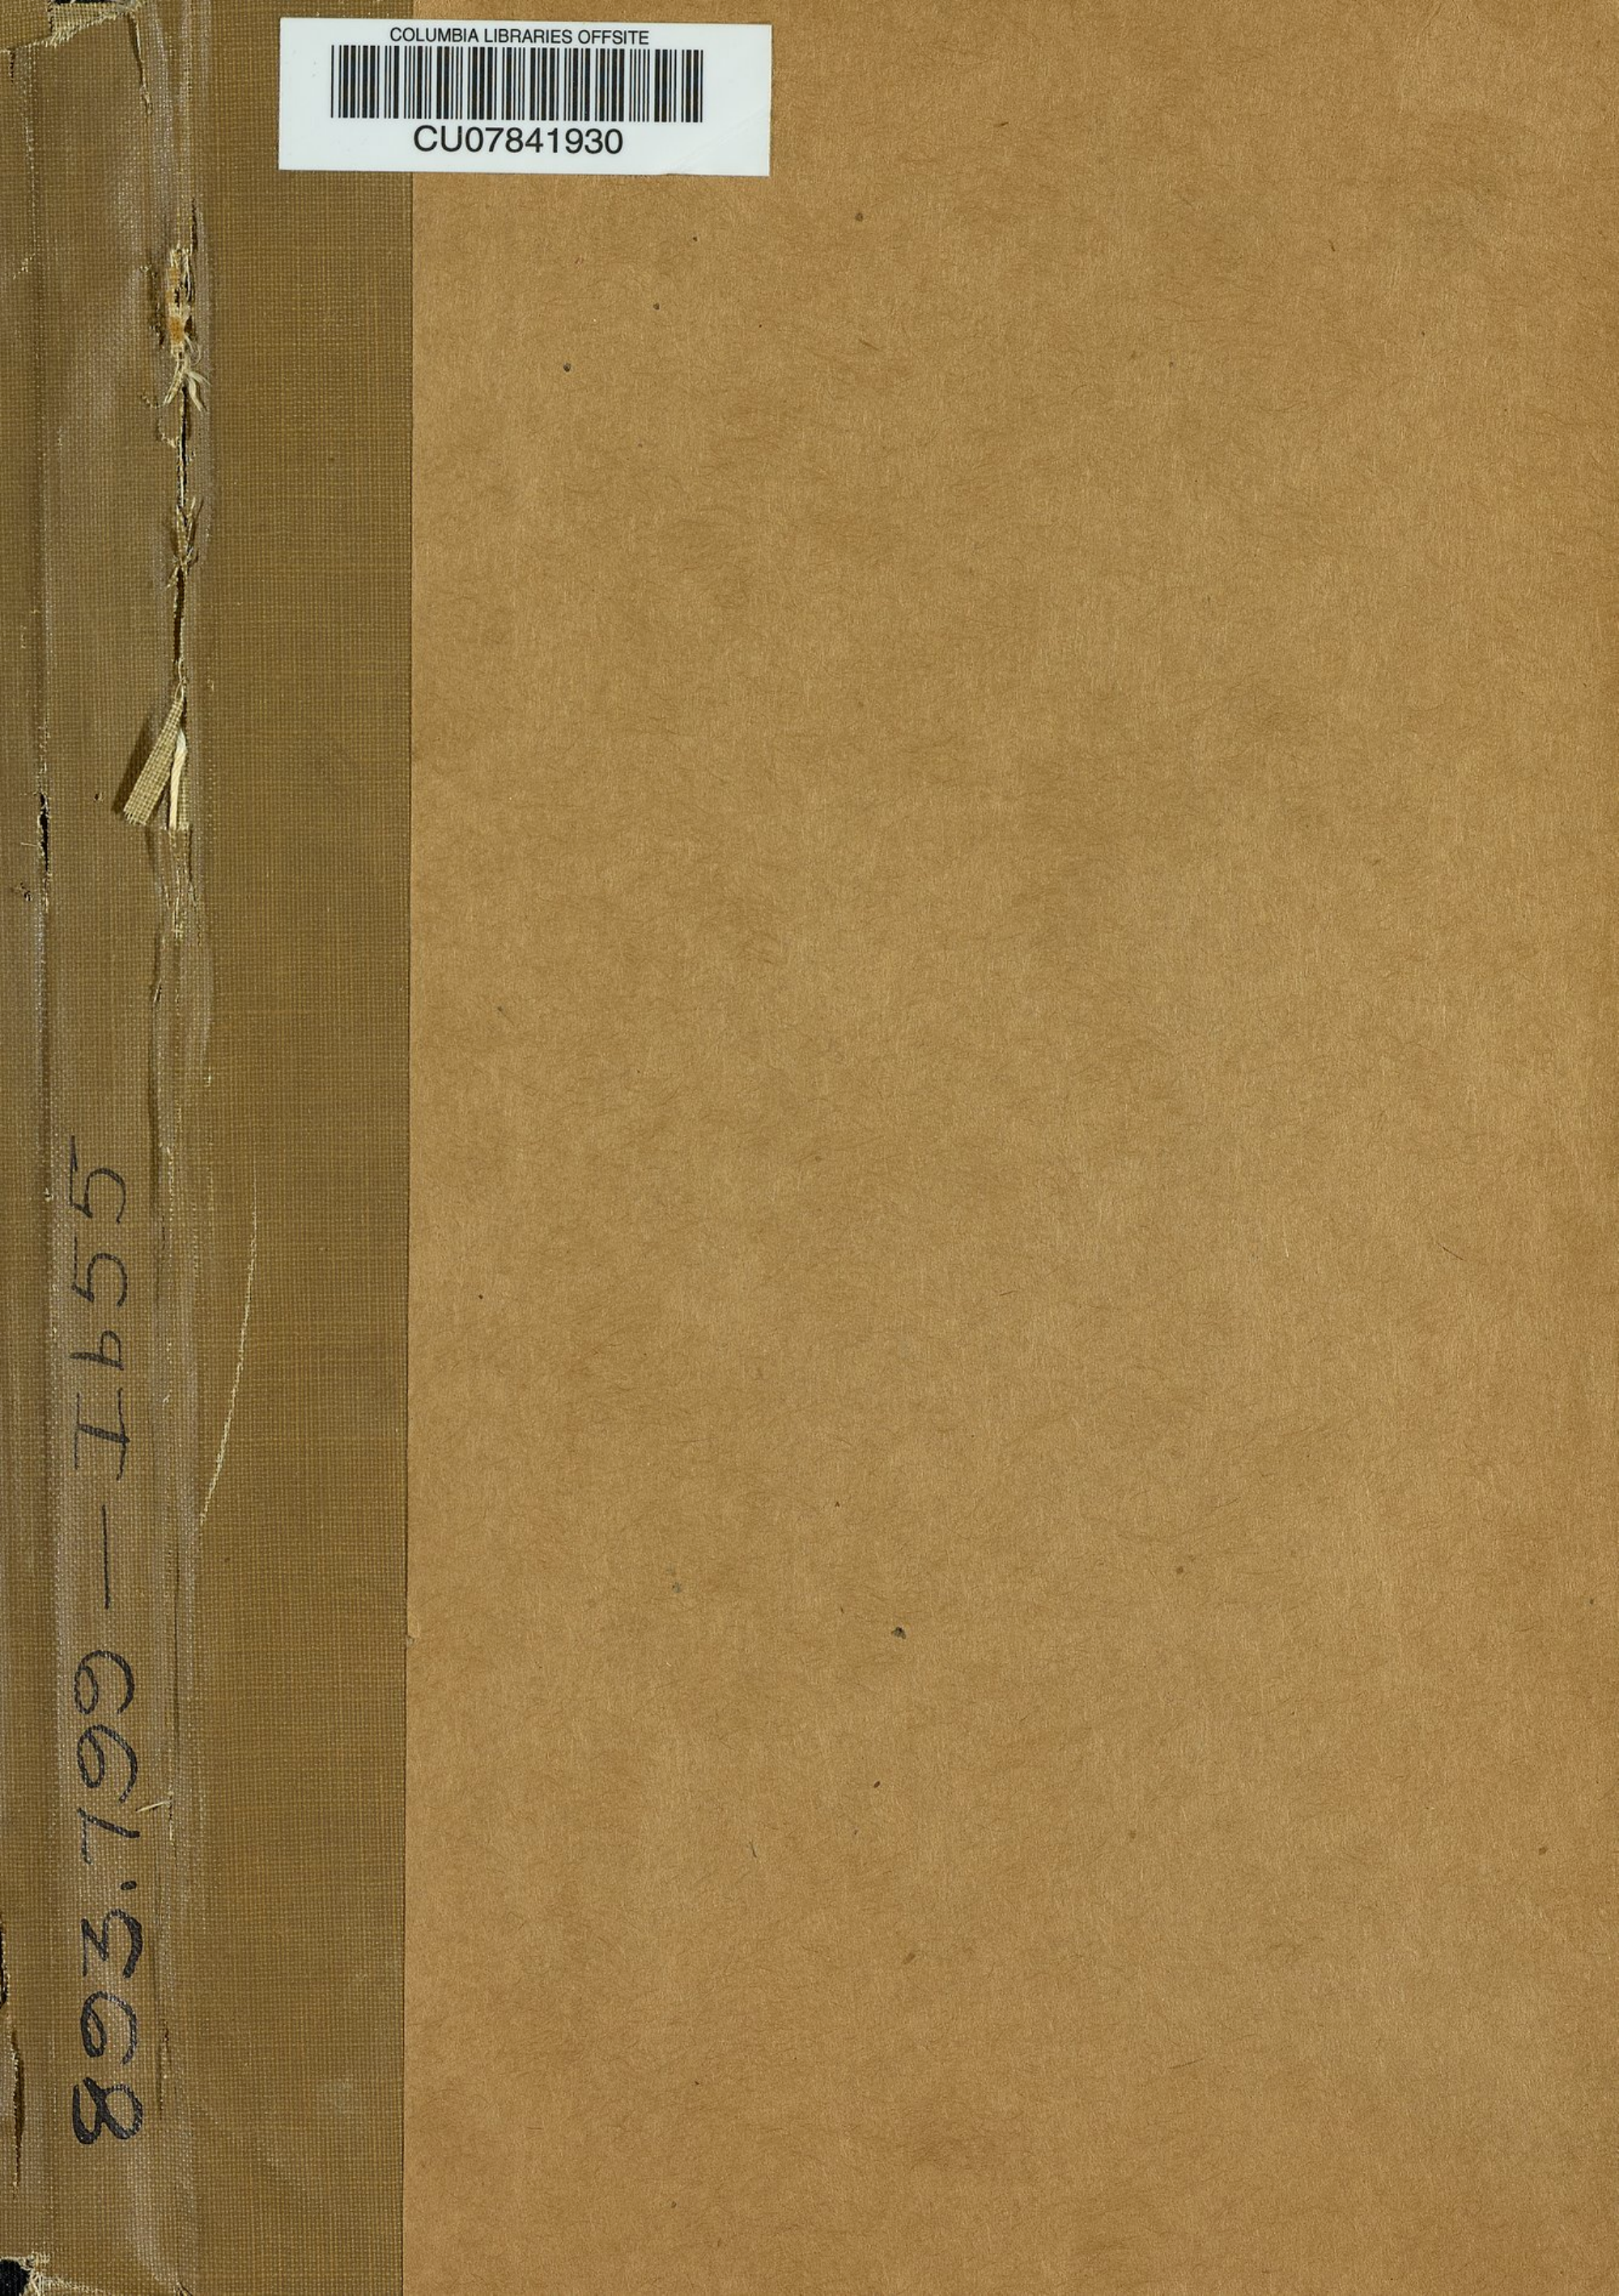 COLUMBIA LIBRARIES OFFSITE
CU07841930
893.799 — Ib55